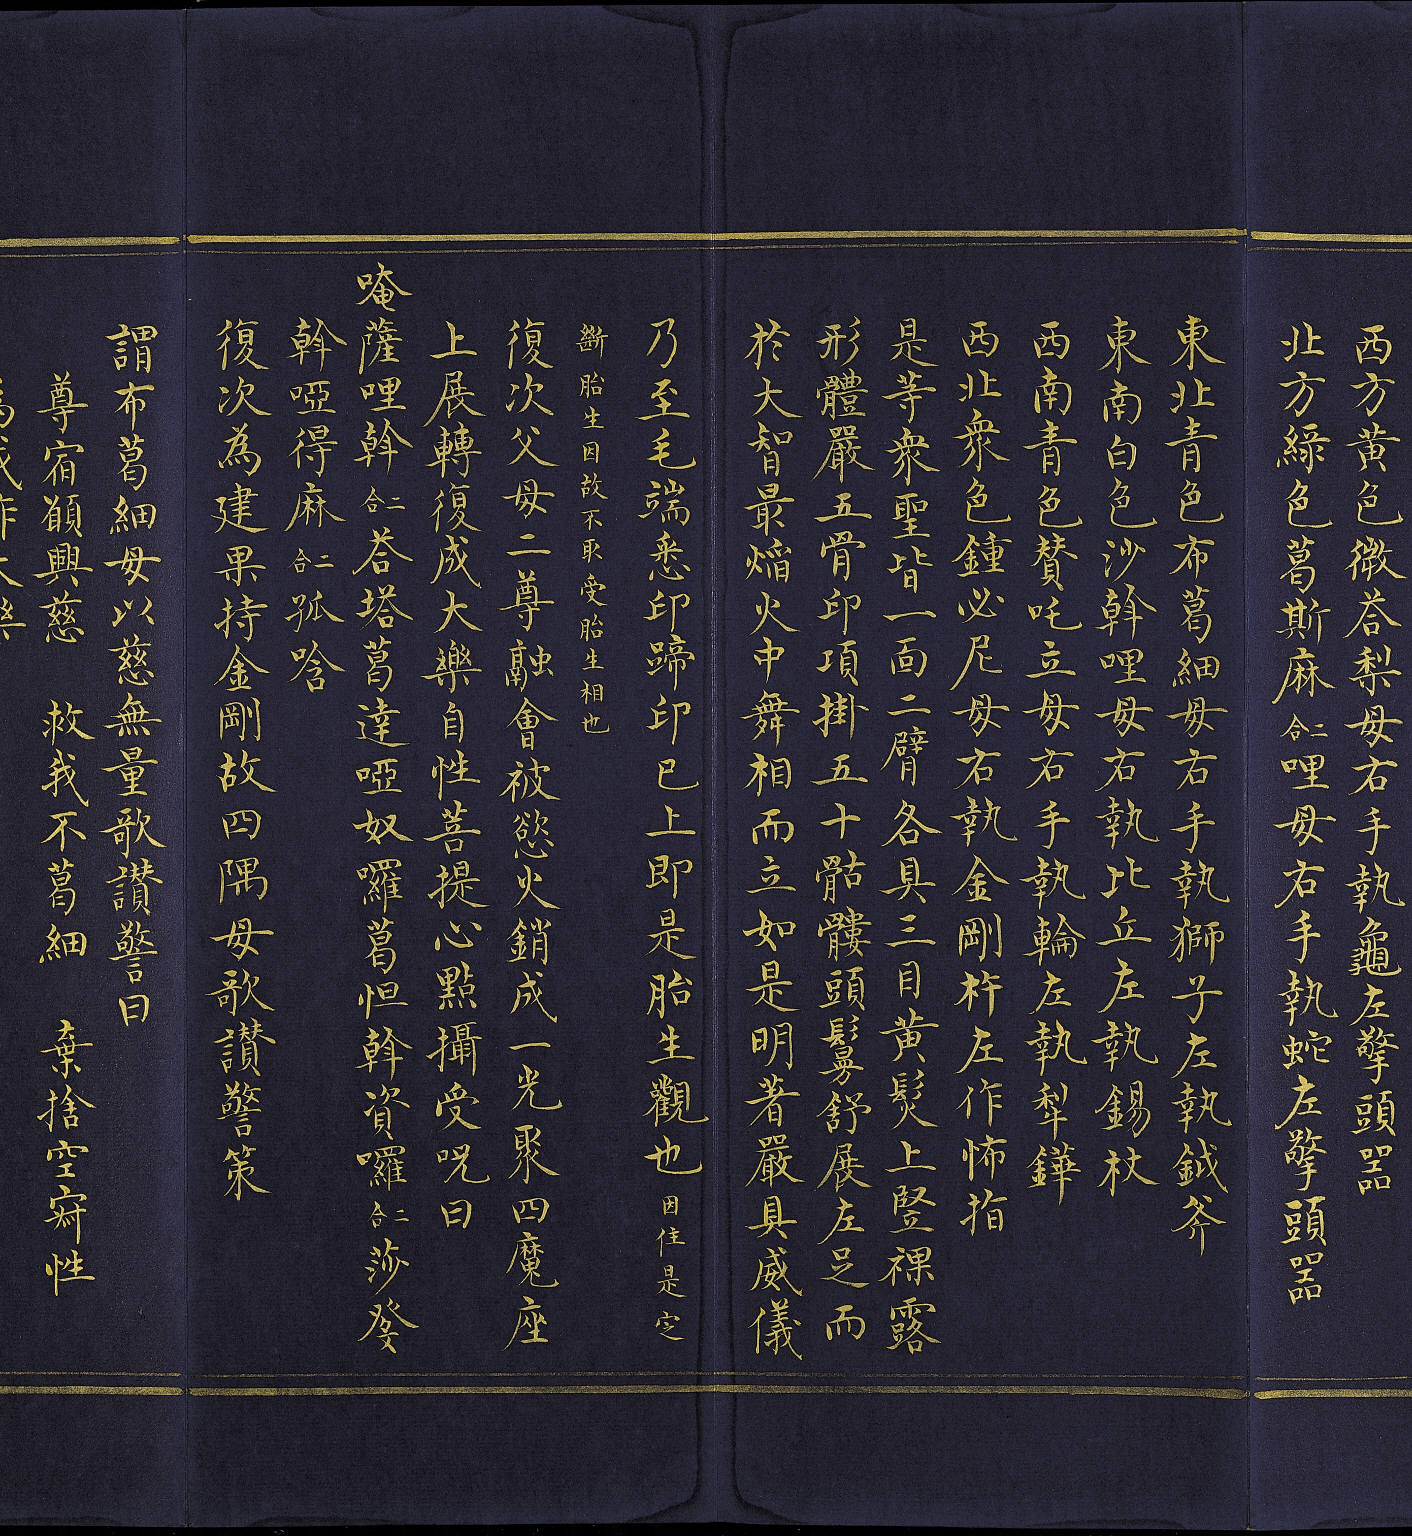 西方黄色徵荅梨母右手執龜左擎頭器
北方綠色葛斯麻二合哩母右手執蛇左擎頭器
東北青色布葛細母右手執獅子左執鉞斧
東南白色沙斡哩母右執比丘左執錫杖
西南青色賛吒立母右手執輪左執犁鏵
西北衆色鍾必尼母右執金剛杵左作怖指
是等衆聖皆一面二臂各具三目黄髮上竪裸露
形體嚴五骨印項掛五十骷髏頭鬘舒展左足而
於大智最熖火中舞相而立如是明著嚴具威儀
乃至毛端悉印蹄印已上即是胎生觀也因住是定
斷胎生因故不取受胎生相也
復次父母二尊融會被慾火銷成一光聚四魔座
上展轉復成大樂自性菩提心點攝受呪曰
唵薩哩斡二合荅塔葛達啞奴囉葛怛斡資囉二合莎癹
斡啞得麻二合孤唅
復次為建果持金剛故四隅母歌讃警策
謂布葛細母以慈無量歌讃警曰
尊宿願興慈 救我不葛細 棄捨空寂性
為我作大樂